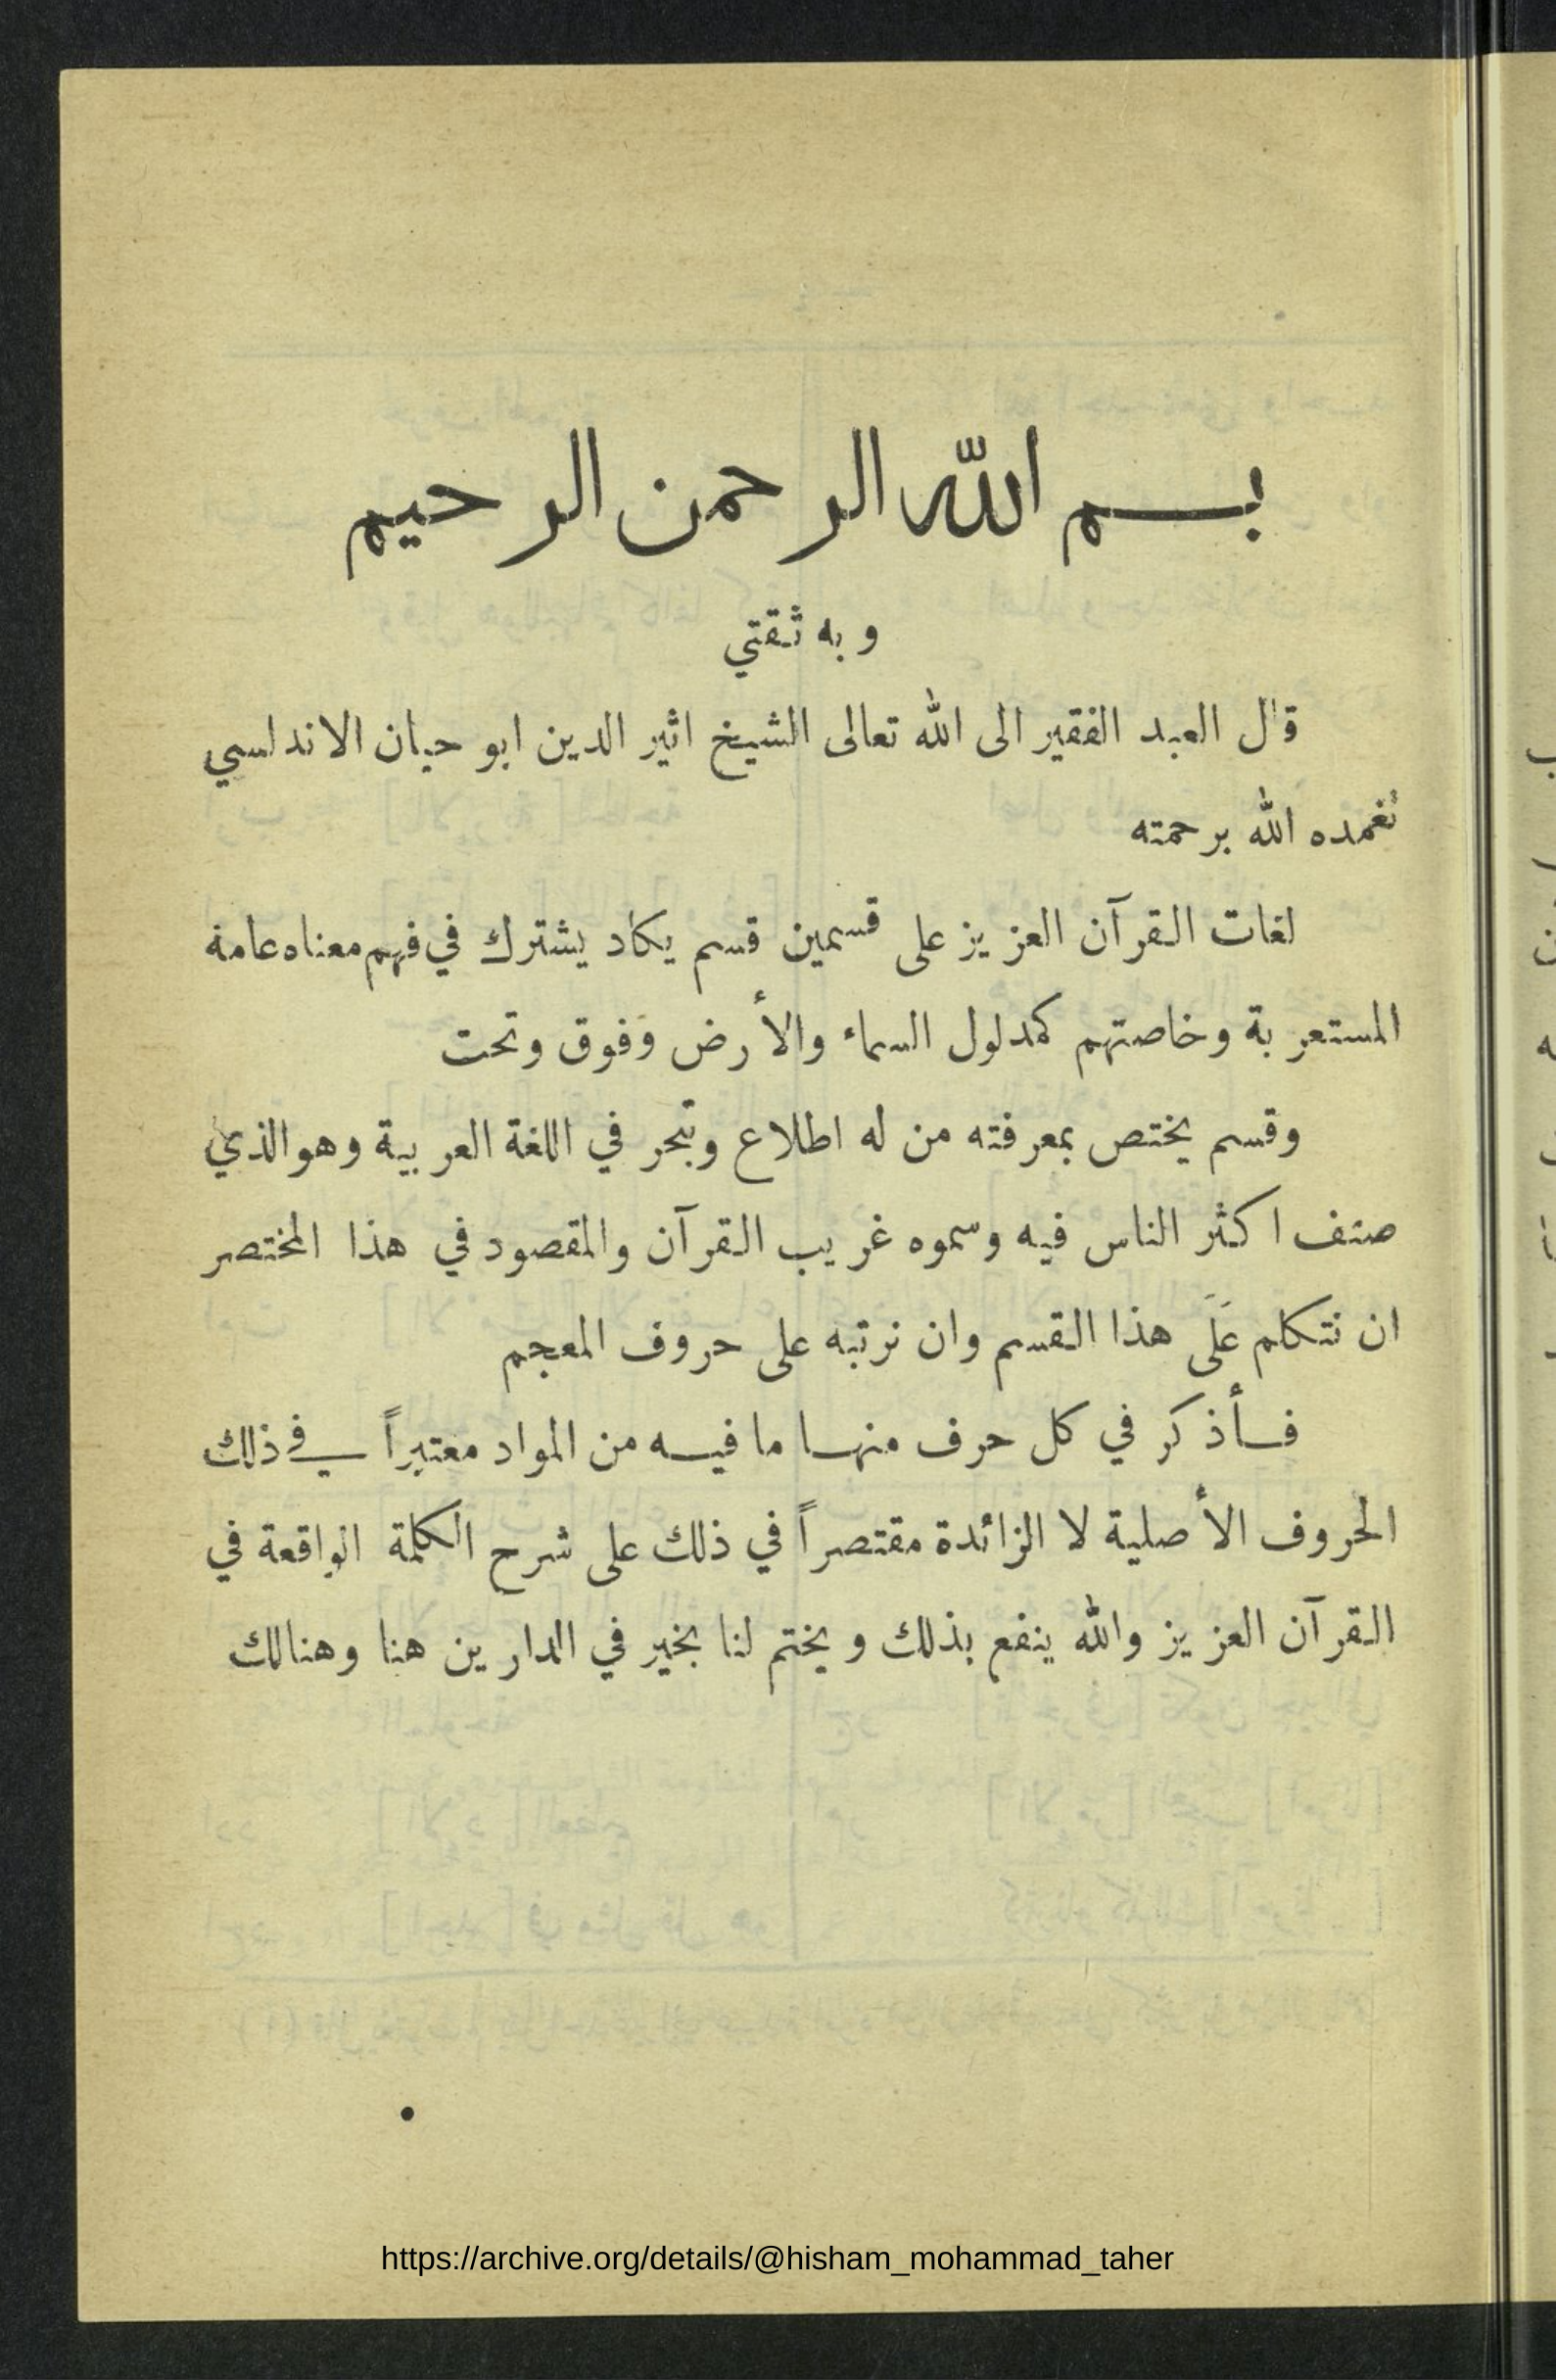 بسم الله الرحمن الرحيم
وبه ثقتي
قال العبد الفقير الى الله تعالى الشيخ اثير الدين ابو حيان الاندلسي
تغمده الله برحمته
لغات القرآن العزيز على قسمين قسم يكاد يشترك في فهم معناه عامة
المستعربة وخاصتهم كمدلول السماء والأرض وفوق وتحت
وقسم يختص بمعرفته من له اطلاع وتبحر في اللغة العربية وهو الذي
صنف اكثر الناس فيه وسموه غريب القرآن والمقصود في هذا المختصر
ان نتكلم عَلَى هذا القسم وان نرتبه على حروف المعجم
فأذكر في كل حرف منها ما فيه من المواد معتبراً في ذلك
الحروف الأصلية لا الزائدة مقتصراً في ذلك على شرح الكلمة الواقعة في
القرآن العزيز والله ينفع بذلك ويختم لنا بخير في الدارين هنا وهنالك
https://archive.org/details/@hisham_mohammad_taher